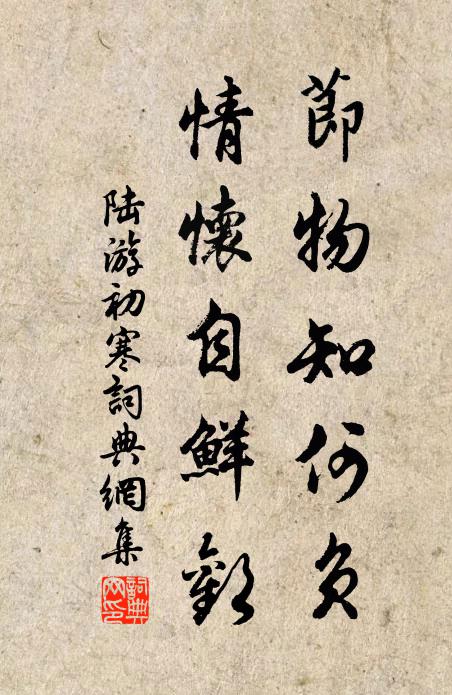 節物知何負
情懷自鮮歡
陸游初寒詞典網集
詞典網印